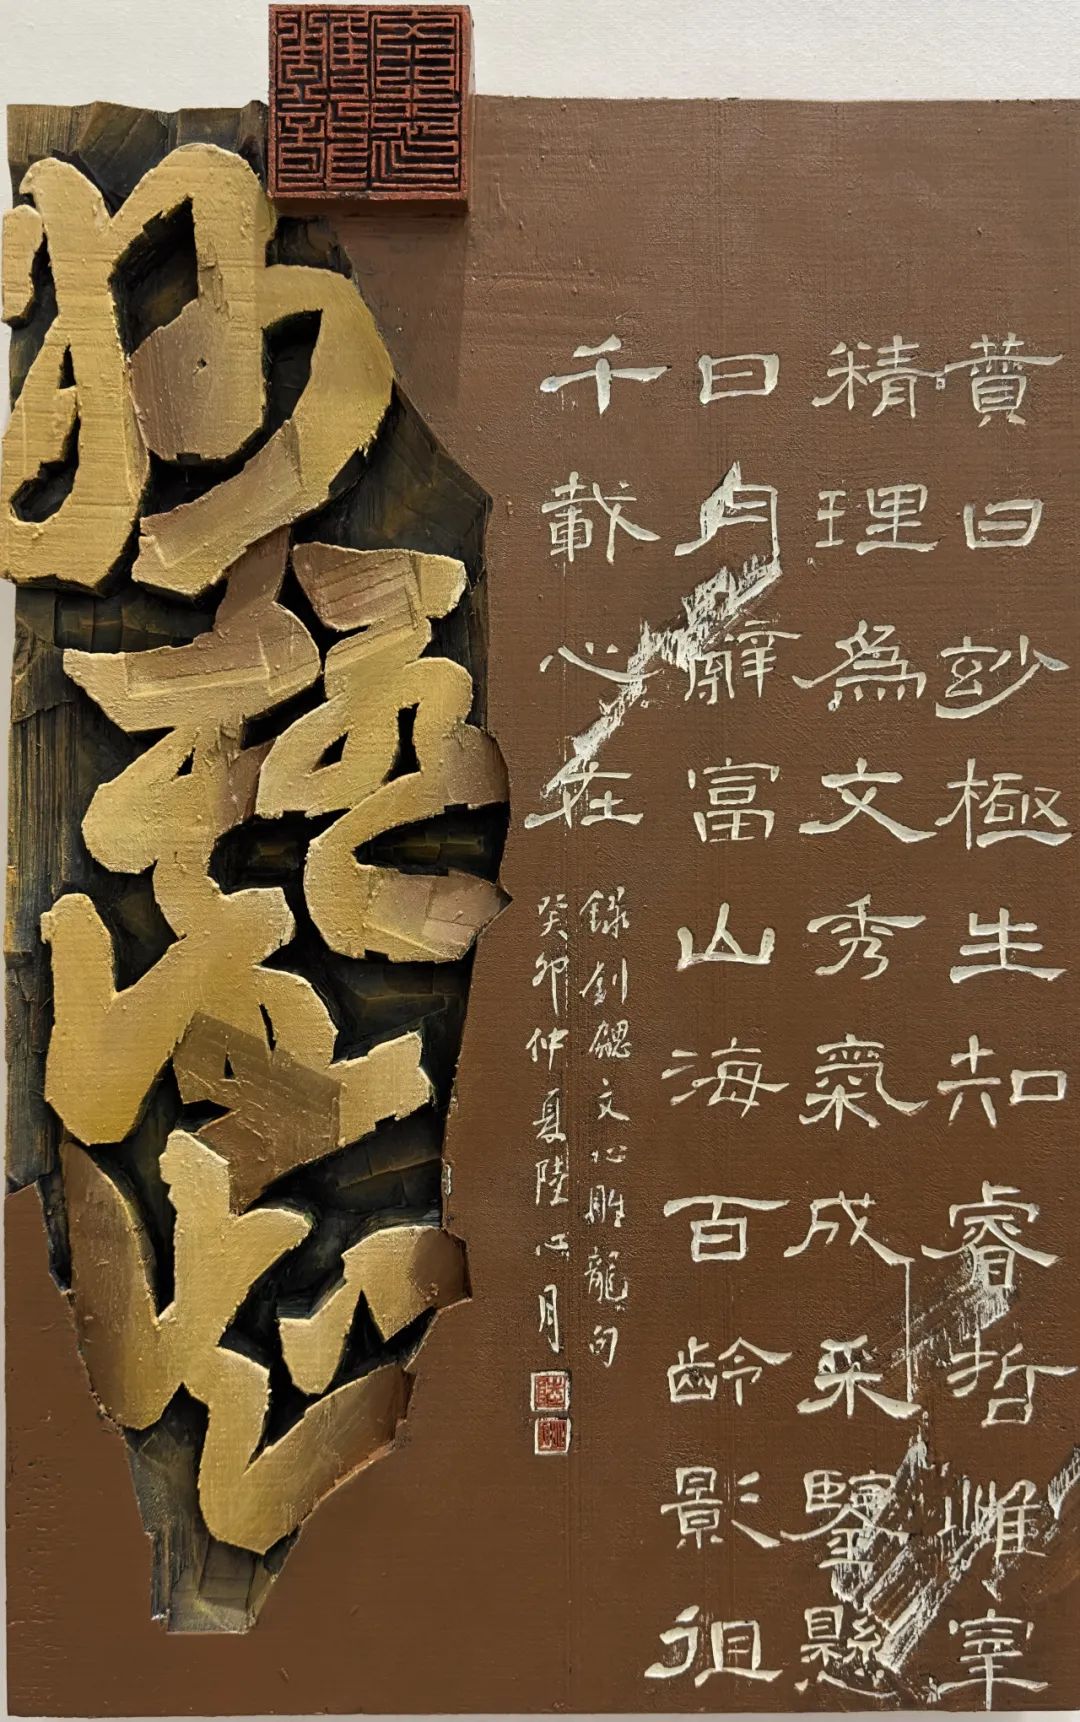 贊曰玅極生知睿哲惟宰
精理爲文秀氣成采鑒懸
日月辭富山海百齡影徂
千載心在
錄劉勰文心雕龍句
癸卯仲夏陸心月